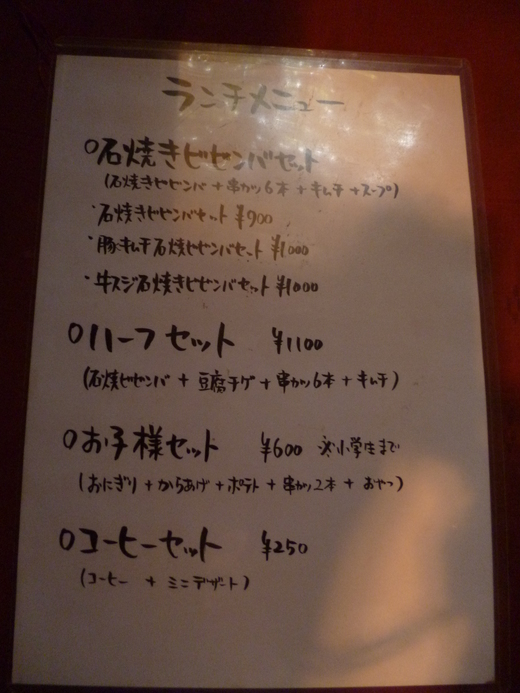 ランチメニュー
○石焼きビビンバセット
(石焼きビビンバ + 串カツ6本 + キムチ + スープ)
・石焼きビビンバセット ¥900
・豚キムチ石焼ビビンバセット ¥1000
・牛スジ石焼きビビンバセット ¥1000
○ハーフセット ¥1100
(石焼ビビンバ + 豆腐チゲ + 串カツ6本 + キムチ)
○お子様セット ¥600 ※小学生まで
(おにぎり + からあげ + ポテト + 串カツ2本 + おやつ)
○コーヒーセット ¥250
(コーヒー + ミニデザート)